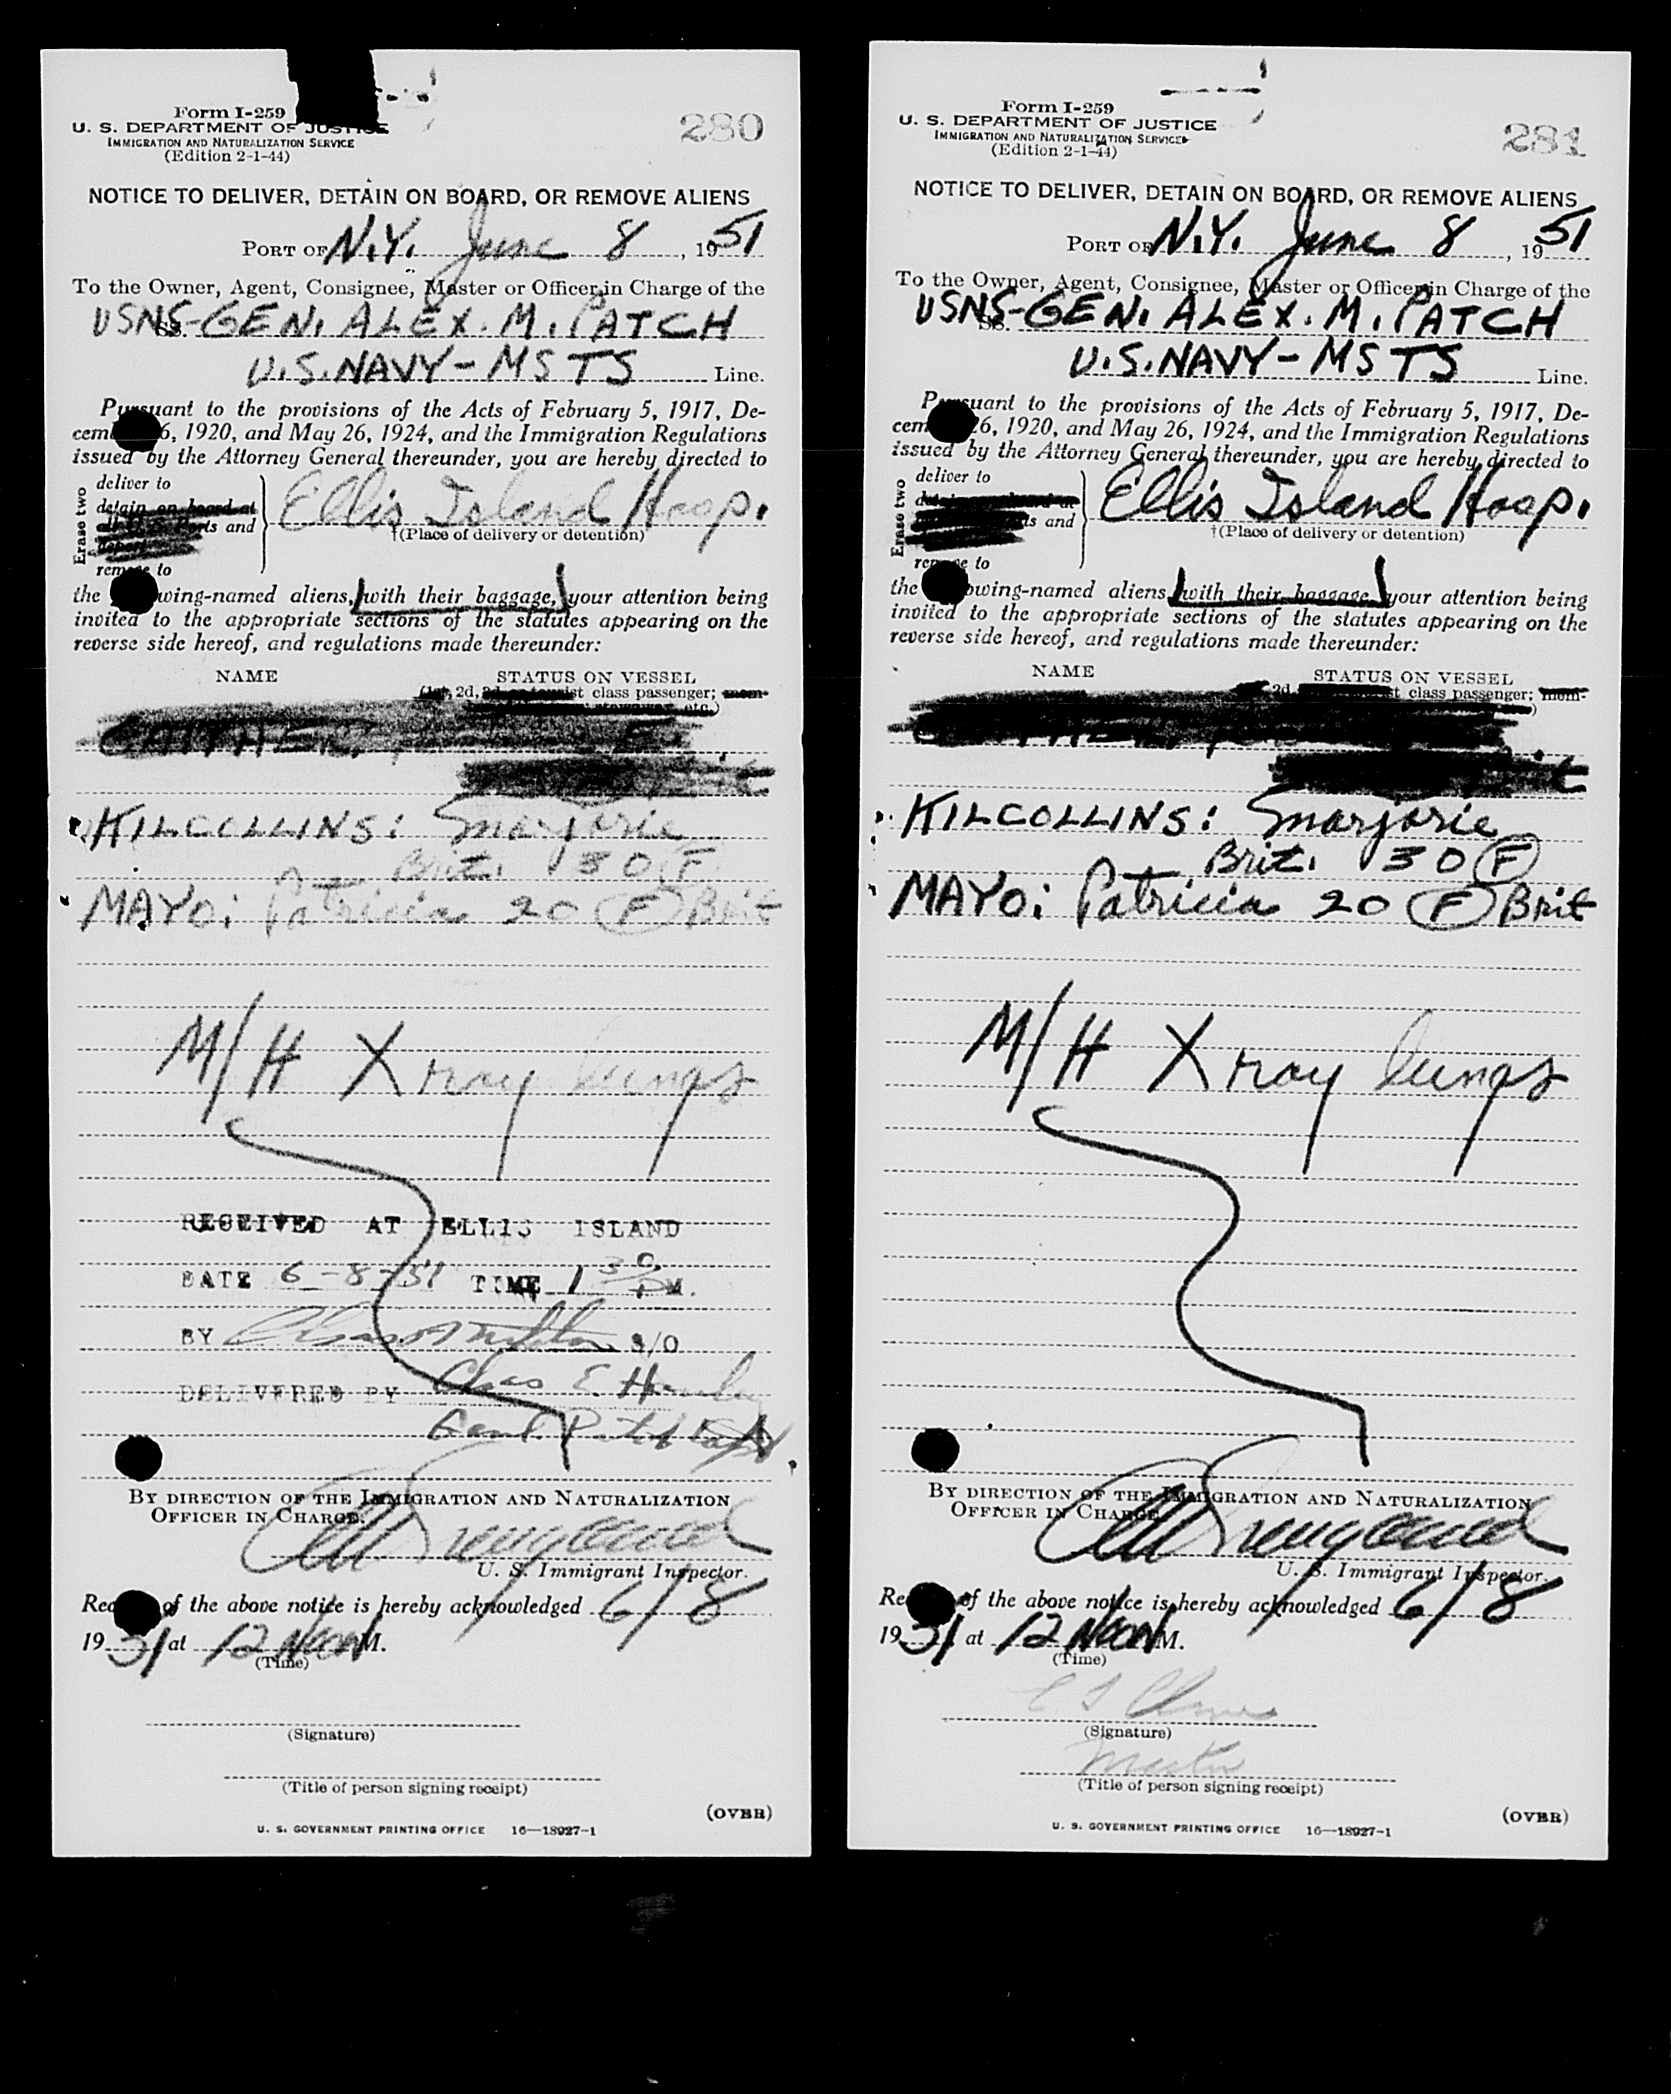 Form I-259
U. S. DEPARTMENT OF JUSTICE
IMMIGRATION AND NATURALIZATION SERVICE
(Edition 2-1-44)
280
NOTICE TO DELIVER, DETAIN ON BOARD, OR REMOVE ALIENS
PORT OF N.Y. June 8, 1951
To the Owner, Agent, Consignee, Master or Officer in Charge of the
SS. USNS-GEN. ALEX. M. PATCH
U.S. NAVY - MSTS Line.
Pursuant to the provisions of the Acts of February 5, 1917, De-
cem 6, 1920, and May 26, 1924, and the Immigration Regulations
issued by the Attorney General thereunder, you are hereby directed to
Erase two
deliver to
detain on board at
all U. S. Ports and
remove to
Ellis Island Hosp.
†(Place of delivery or detention)
the wing-named aliens, with their baggage, your attention being
invited to the appropriate sections of the statutes appearing on the
reverse side hereof, and regulations made thereunder:
NAME STATUS ON VESSEL
2d, class passenger; mem-
etc.)
KILCOLLINS: Marjorie
Brit. 30 F
MAYO: Patricia 20 F Brit
M/H X ray lungs
RECEIVED AT ELLIS ISLAND
DATE 6-8-51 TIME 1 30 PM.
BY S/O
DELIVERED BY Chas E.
BY DIRECTION OF THE IMMIGRATION AND NATURALIZATION
OFFICER IN CHARGE.
U. S. Immigrant Inspector.
Rec of the above notice is hereby acknowledged 6/8
1951 at 12 Noon M.
(Time)
(Signature)
(Title of person signing receipt)
(OVER)
U. S. GOVERNMENT PRINTING OFFICE 16—18927-1
Form I-259
U. S. DEPARTMENT OF JUSTICE
IMMIGRATION AND NATURALIZATION SERVICE
(Edition 2-1-44)
281
NOTICE TO DELIVER, DETAIN ON BOARD, OR REMOVE ALIENS
PORT OF N.Y. June 8, 1951
To the Owner, Agent, Consignee, Master or Officer in Charge of the
SS. USNS-GEN. ALEX. M. PATCH
U.S. NAVY - MSTS Line.
Pursuant to the provisions of the Acts of February 5, 1917, De-
cem 26, 1920, and May 26, 1924, and the Immigration Regulations
issued by the Attorney General thereunder, you are hereby directed to
Erase two
deliver to
and
remove to
Ellis Island Hosp.
†(Place of delivery or detention)
the owing-named aliens, with their baggage, your attention being
invited to the appropriate sections of the statutes appearing on the
reverse side hereof, and regulations made thereunder:
NAME STATUS ON VESSEL
2d, class passenger; mem-
KILCOLLINS: Marjorie
Brit. 30 F
MAYO: Patricia 20 F Brit
M/H X ray lungs
BY DIRECTION OF THE IMMIGRATION AND NATURALIZATION
OFFICER IN CHARGE.
U. S. Immigrant Inspector.
Re of the above notice is hereby acknowledged 6/8
1951 at 12 Noon M.
(Time)
(Signature)
Master
(Title of person signing receipt)
(OVER)
U. S. GOVERNMENT PRINTING OFFICE 16—18927-1